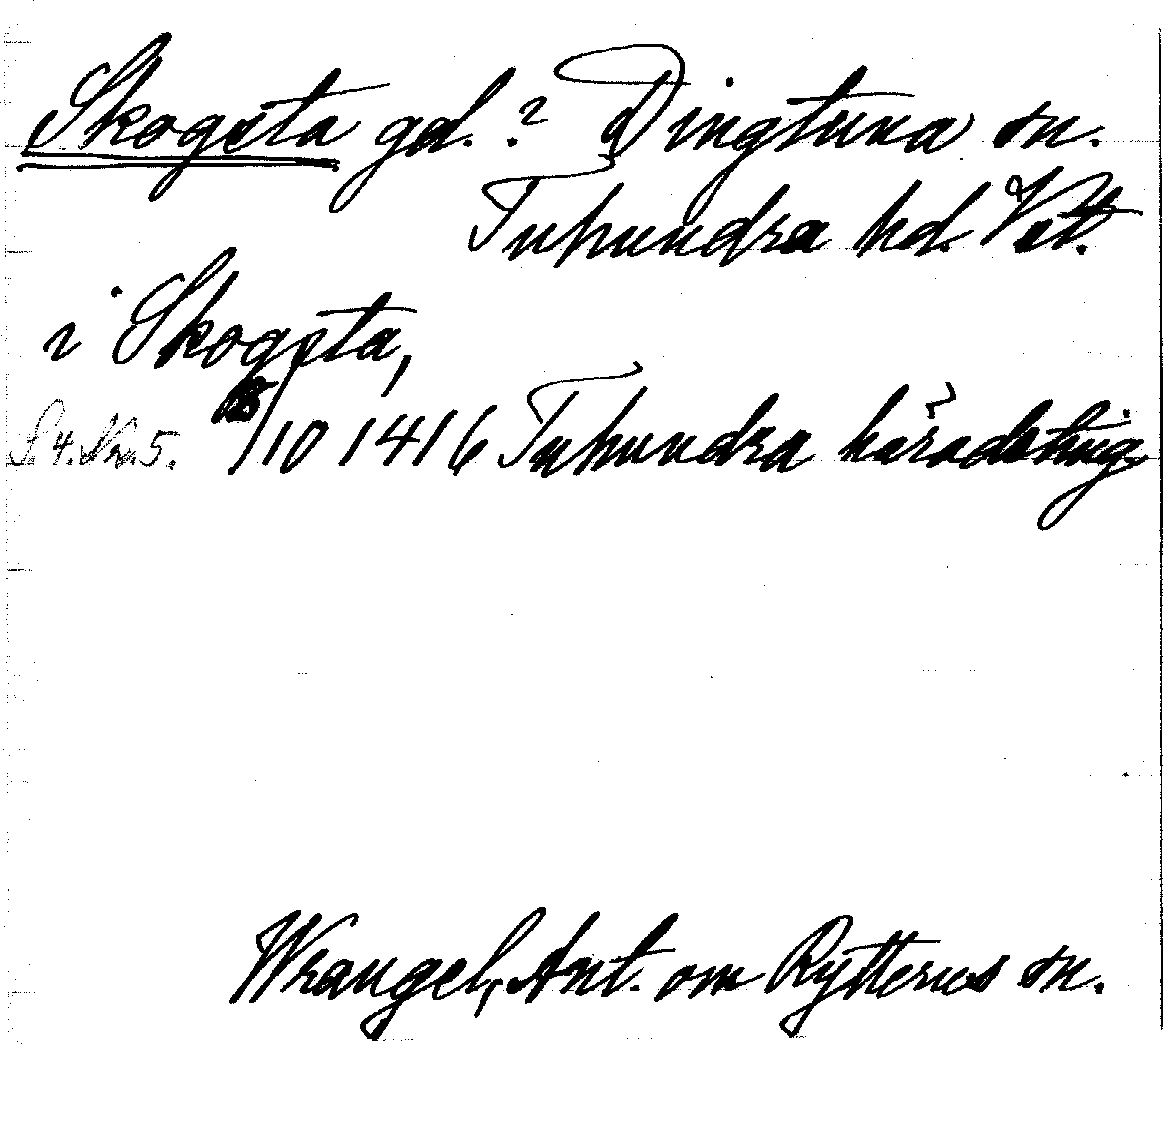 Skogsta gd. ? Dingtuna sn.
Tuhundra hd. Vstl.
i Skogsta,
S. 4. No. 5. /10 1416 Tuhundra häradsting
Wrangel, Ant. om Rytterns sn.